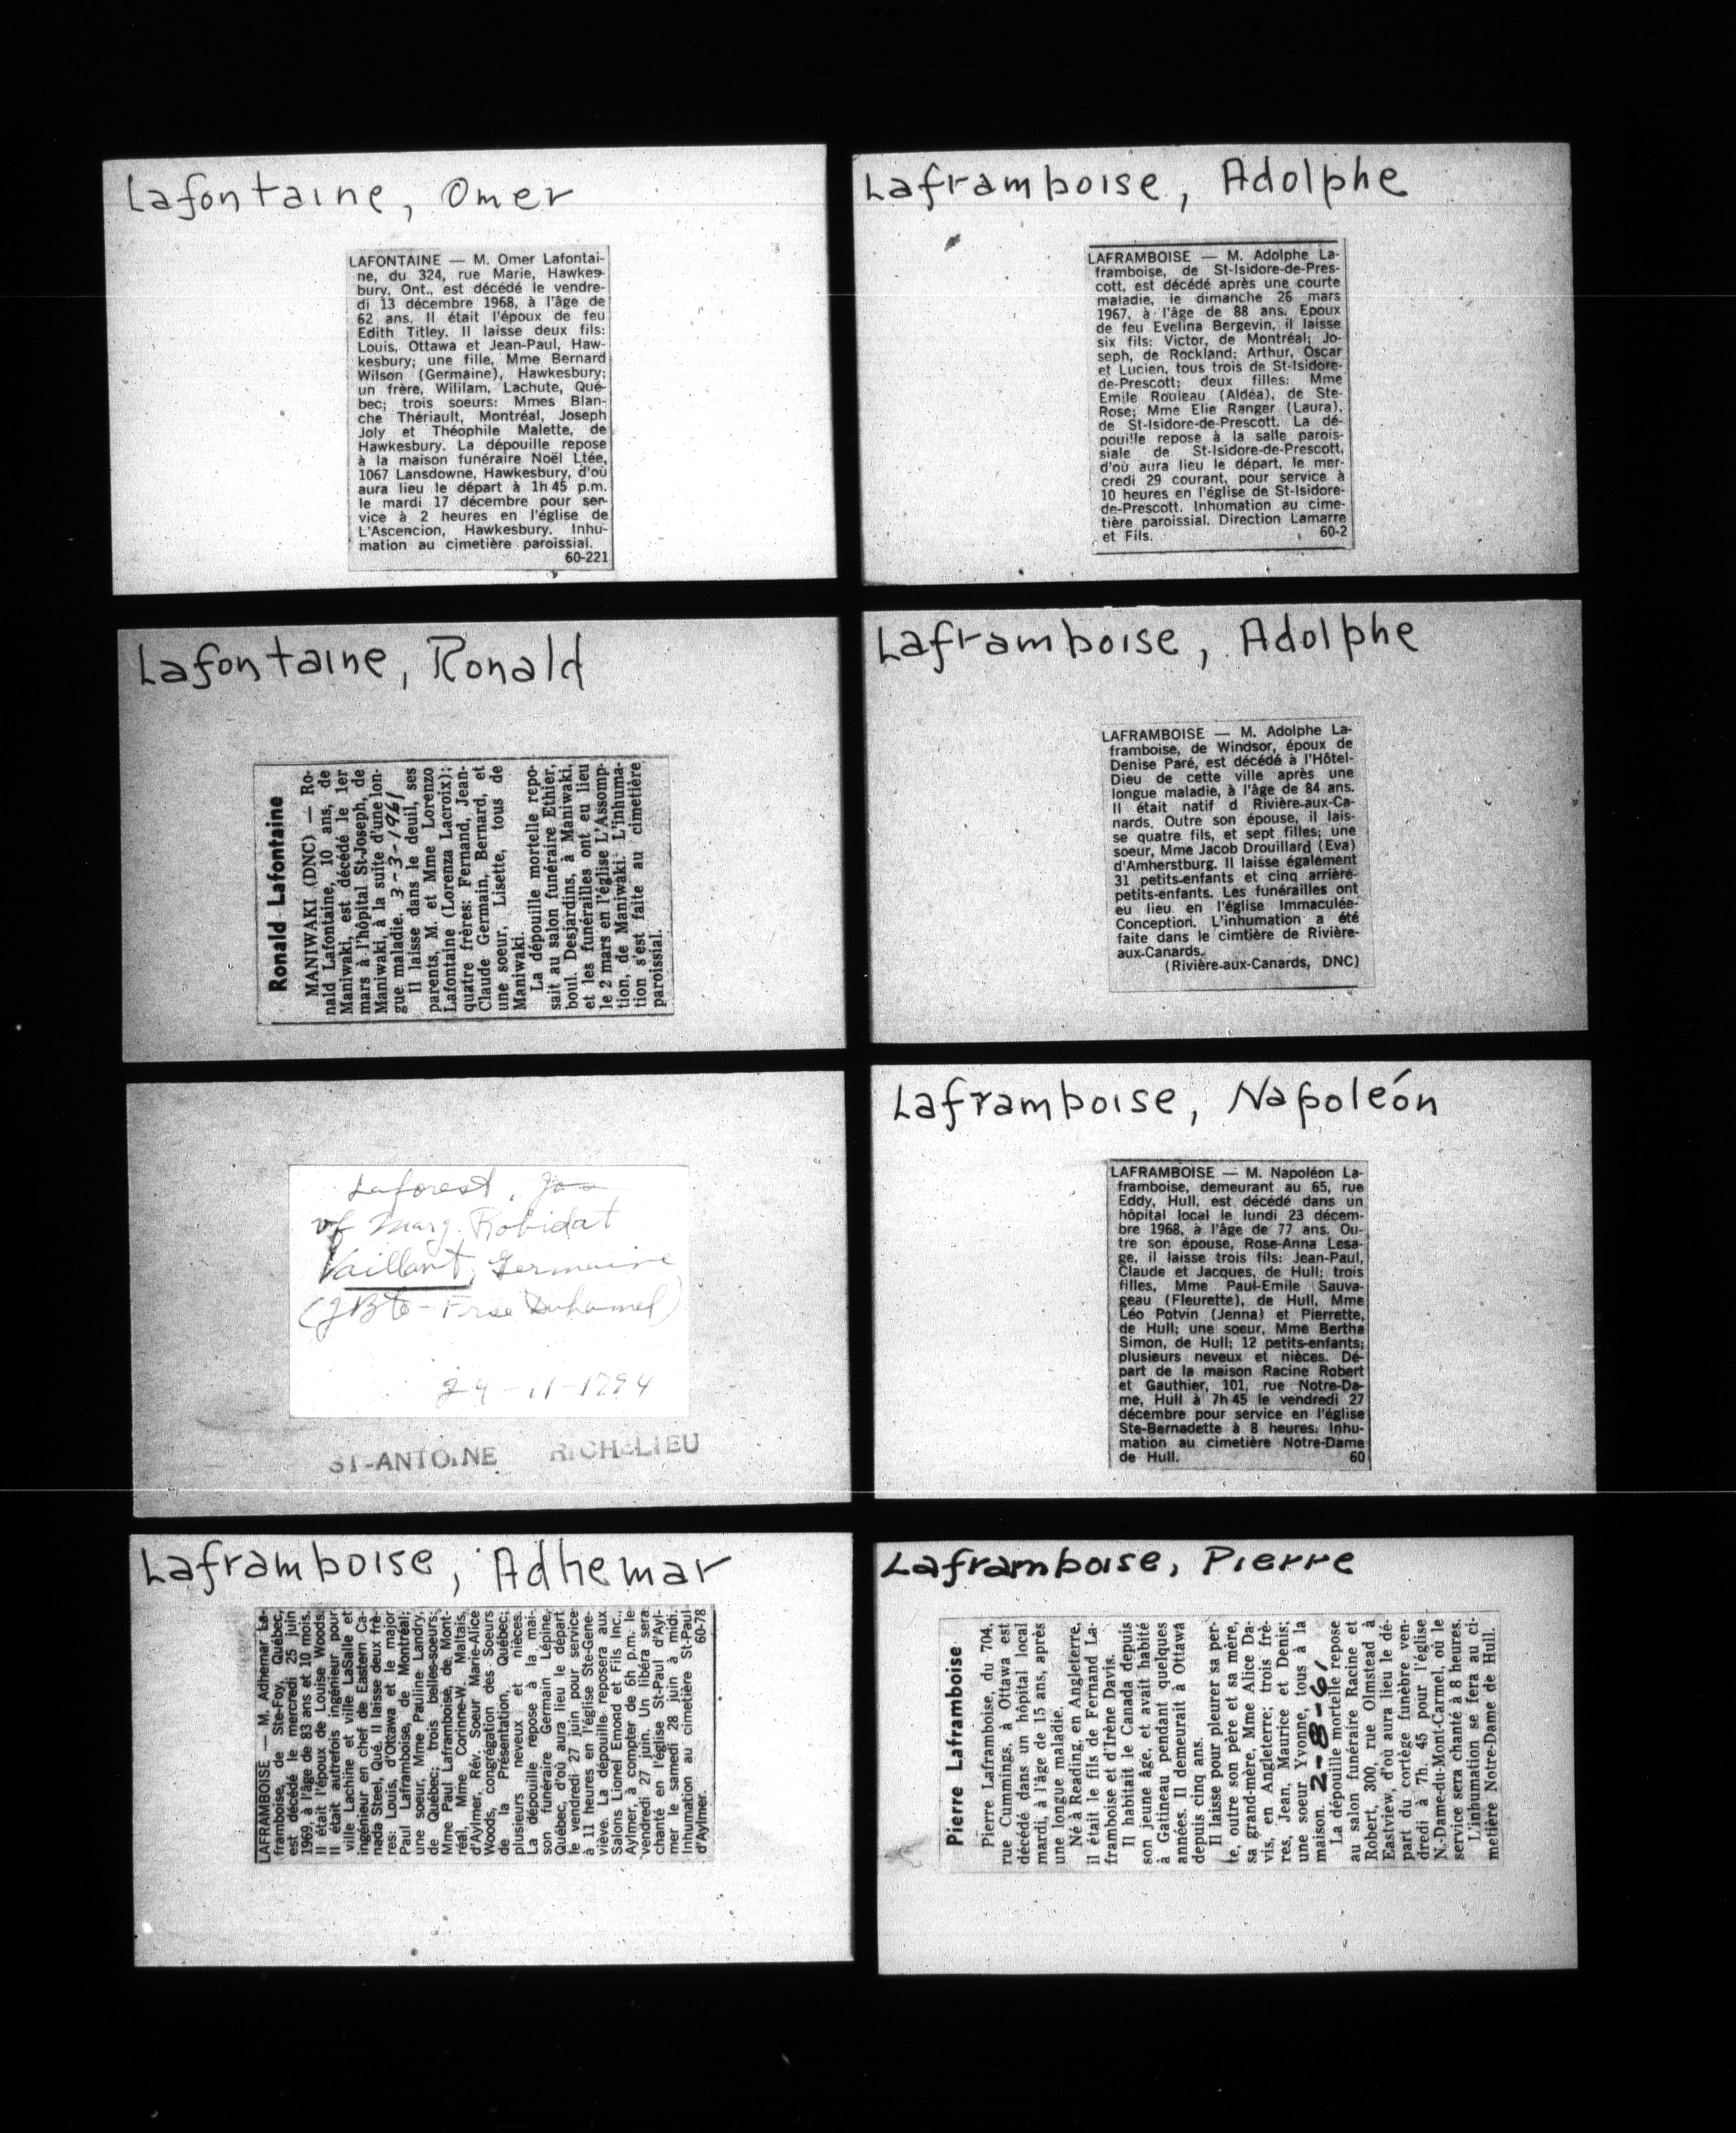 Lafontaine, Omer
LAFONTAINE — M. Omer Lafontai-
ne, du 324, rue Marie, Hawkes-
bury, Ont., est décédé le vendre-
di 13 décembre 1968, à l'âge de
62 ans. Il était l'époux de feu
Edith Titley. Il laisse deux fils:
Louis, Ottawa et Jean-Paul, Haw-
kesbury; une fille, Mme Bernard
Wilson (Germaine), Hawkesbury;
un frère, Wililam, Lachute, Qué-
bec; trois soeurs: Mmes Blan-
che Thériault, Montréal, Joseph
Joly et Théophile Malette, de
Hawkesbury. La dépouille repose
à la maison funéraire Noël Ltée,
1067 Lansdowne, Hawkesbury, d'où
aura lieu le départ à 1h 45 p.m.
le mardi 17 décembre pour ser-
vice à 2 heures en l'église de
L'Ascencion, Hawkesbury. Inhu-
mation au cimetière paroissial.
60-221
Laframboise, Adolphe
LAFRAMBOISE — M. Adolphe La-
framboise, de St-Isidore-de-Pres-
cott, est décédé après une courte
maladie, le dimanche 26 mars
1967, à l'âge de 88 ans. Epoux
de feu Evelina Bergevin, il laisse
six fils: Victor, de Montréal; Jo-
seph, de Rockland; Arthur, Oscar
et Lucien, tous trois de St-Isidore-
de-Prescott; deux filles: Mme
Emile Rouleau (Aldéa), de Ste-
Rose; Mme Elie Ranger (Laura),
de St-Isidore-de-Prescott. La dé-
pouille repose à la salle parois-
siale de St-Isidore-de-Prescott,
d'où aura lieu le départ, le mer-
credi 29 courant, pour service à
10 heures en l'église de St-Isidore-
de-Prescott. Inhumation au cime-
tière paroissial. Direction Lamarre
et Fils. 60-2
Lafontaine, Ronald
Ronald Lafontaine
MANIWAKI (DNC) — Ro-
nald Lafontaine, 10 ans, de
Maniwaki, est décédé le 1er
mars à l'hôpital St-Joseph, de
Maniwaki, à la suite d'une lon-
gue maladie. 3-3-1961
Il laisse dans le deuil, ses
parents, M. et Mme Lorenzo
Lafontaine (Lorenza Lacroix);
quatre frères: Fernand, Jean-
Claude Germain, Bernard, et
une soeur, Lisette, tous de
Maniwaki.
La dépouille mortelle repo-
sait au salon funéraire Ethier,
boul. Desjardins, à Maniwaki,
et les funérailles ont eu lieu
le 2 mars en l'église L'Assomp-
tion, de Maniwaki. L'inhuma-
tion s'est faite au cimetière
paroissial.
Laframboise, Adolphe
LAFRAMBOISE — M. Adolphe La-
framboise, de Windsor, époux de
Denise Paré, est décédé à l'Hôtel-
Dieu de cette ville après une
longue maladie, à l'âge de 84 ans.
Il était natif d Rivière-aux-Ca-
nards. Outre son épouse, il lais-
se quatre fils, et sept filles; une
soeur, Mme Jacob Drouillard (Eva)
d'Amherstburg. Il laisse également
31 petits-enfants et cinq arrière-
petits-enfants. Les funérailles ont
eu lieu en l'église Immaculée-
Conception. L'inhumation a été
faite dans le cimtière de Rivière-
aux-Canards.
(Rivière-aux-Canards, DNC)
Laforest,
vf Marg. Robidat
Vaillant, Germaine
(JBte - Frse Duhamel)
24-11-1794
ST-ANTOINE RICHELIEU
Laframboise, Napoléon
LAFRAMBOISE — M. Napoléon La-
framboise, demeurant au 65, rue
Eddy, Hull, est décédé dans un
hôpital local le lundi 23 décem-
bre 1968, à l'âge de 77 ans. Ou-
tre son épouse, Rose-Anna Lesa-
ge, il laisse trois fils: Jean-Paul,
Claude et Jacques, de Hull; trois
filles, Mme Paul-Emile Sauva-
geau (Fleurette), de Hull, Mme
Léo Potvin (Jenna) et Pierrette,
de Hull; une soeur, Mme Bertha
Simon, de Hull; 12 petits-enfants;
plusieurs neveux et nièces. Dé-
part de la maison Racine Robert
et Gauthier, 101, rue Notre-Da-
me, Hull à 7h 45 le vendredi 27
décembre pour service en l'église
Ste-Bernadette à 8 heures. Inhu-
mation au cimetière Notre-Dame
de Hull. 60
Laframboise, Adhemar
LAFRAMBOISE — M. Adhemar La-
framboise, de Ste-Foy, Québec,
est décédé le mercredi 25 juin
1969, à l'âge de 83 ans et 10 mois.
Il était l'époux de Louise Woods.
Il était autrefois ingénieur pour
ville Lachine et ville LaSalle et
ingénieur en chef de Eastern Ca-
nada Steel, Qué. Il laisse deux frè-
res: Louis, d'Ottawa et le major
Paul Laframboise, de Montréal;
une soeur, Mme Pauline Landry,
de Québec; trois belles-soeurs;
Mme Paul Laframboise, de Mont-
réal, Mme Corinne-W. Maltais,
d'Aylmer, Rév. Soeur Marie-Alice
Woods, congrégation des Soeurs
de la Présentation, Québec;
plusieurs neveux et nièces.
La dépouille repose à la mai-
son funéraire Germain Lépine,
Québec, d'où aura lieu le départ
le vendredi 27 juin pour service
à 11 heures en l'église Ste-Gene-
viève. La dépouille reposera aux
Salons Lionel Emond et Fils Inc.,
Aylmer, à compter de 6h p.m. le
vendredi 27 juin. Un libéra sera
chanté en l'église St-Paul d'Ayl-
mer le samedi 28 juin à midi.
Inhumation au cimetière St-Paul
d'Aylmer. 60-78
Laframboise, Pierre
Pierre Laframboise
Pierre Laframboise, du 704,
rue Cummings, à Ottawa est
décédé dans un hôpital local
mardi, à l'âge de 15 ans, après
une longue maladie.
Né à Reading, en Angleterre,
il était le fils de Fernand La-
framboise et d'Irène Davis.
Il habitait le Canada depuis
son jeune âge, et avait habité
à Gatineau pendant quelques
années. Il demeurait à Ottawa
depuis cinq ans.
Il laisse pour pleurer sa per-
te, outre son père et sa mère,
sa grand-mère, Mme Alice Da-
vis, en Angleterre; trois frè-
res, Jean, Maurice et Denis;
une soeur Yvonne, tous à la
maison. 2-8-61
La dépouille mortelle repose
au salon funéraire Racine et
Robert, 300, rue Olmstead à
Eastview, d'où aura lieu le dé-
part du cortège funèbre ven-
dredi à 7h. 45 pour l'église
N.-Dame-du-Mont-Carmel, où le
service sera chanté à 8 heures.
L'inhumation se fera au ci-
metière Notre-Dame de Hull.